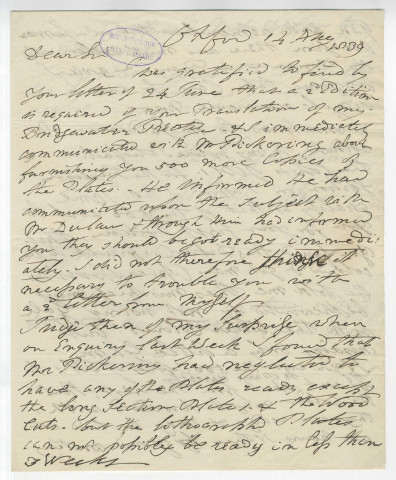 Oxford 14 Aug
1839
Dear Sir
I was gratified to find by
your letter of 24 June that a 2d Edition
is required of your Translation of my
Bridgewater Treatise & I immediately
communicated with Mr Pickering about
furnishing you 500 more Copies of
the Plates. He informed He had
communicated upon the subject with
Mr Dulau & through Him had informed
you they should be got ready immedi
ately. I did not therefore think it
necessary to trouble you with
a 2d letter from Myself
Judge then of my Surprise when
on Enquiry last Week I found that
Mr Pickering had neglected to
have any of the Plates ready except
the long Section Plate 1. & the Wood
Cuts. but the lithographd Plates
can not possibly be ready in less than
3 Weeks